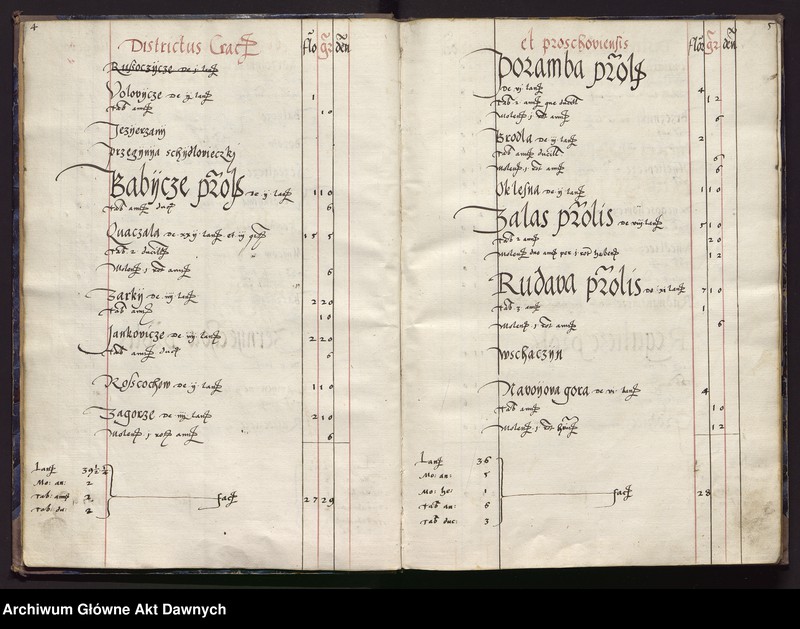 4
Districtus Crac
flo gr den
Russoczÿcze de j lan
Volovÿcze de ij lan 1
Tab ami 10
Jezyerzany
przegynya schÿdlovieczkj
Babÿcze pro̅lis de ij lan 1 10
Tab ami duct 6
Quaczala de xxij lan et iij 15 5
Tab 2 ductil
Molen 1 rot ami 6
Zarkÿ de iiij lan 2 20
Tab ami 10
Jankovicze de iiij lan 2 20
Tab ami duct 6
Roscochow de ij lan 1 10
Zagorze de iiij lan 2 10
Molen 1 ami 6
Lan 39
Mo: an: 2
Tab: anu 2
Tab: du: 2
fac 27 29
5
et proschoviensis
flor gr den
Poramba pro̅lis
de vj lan 4
Tab 2 ami que ductil 12
Molen 1 rot ami 6
Brodla de iij lan 2
Tab ami ductil 6
Molen 1 rot ami 6
Oklesna de ij lan 1 10
Zalas pro̅lis de viij lan 5 10
Tab 2 ami 20
Molen duo ami per 1 rot haben 12
Rudava pro̅lis de xi lan 7 10
Tab 3 ami 1
Molen 1 rot ami 6
Wschaczyn
Navoyova gora de vi lan 4
Tab ami 10
Molen 1 rot 12
Lan 36
Mo: an: 5
Mo: he: 1
Tab an: 6
Tab duc: 3
fac 28
Archiwum Główne Akt Dawnych